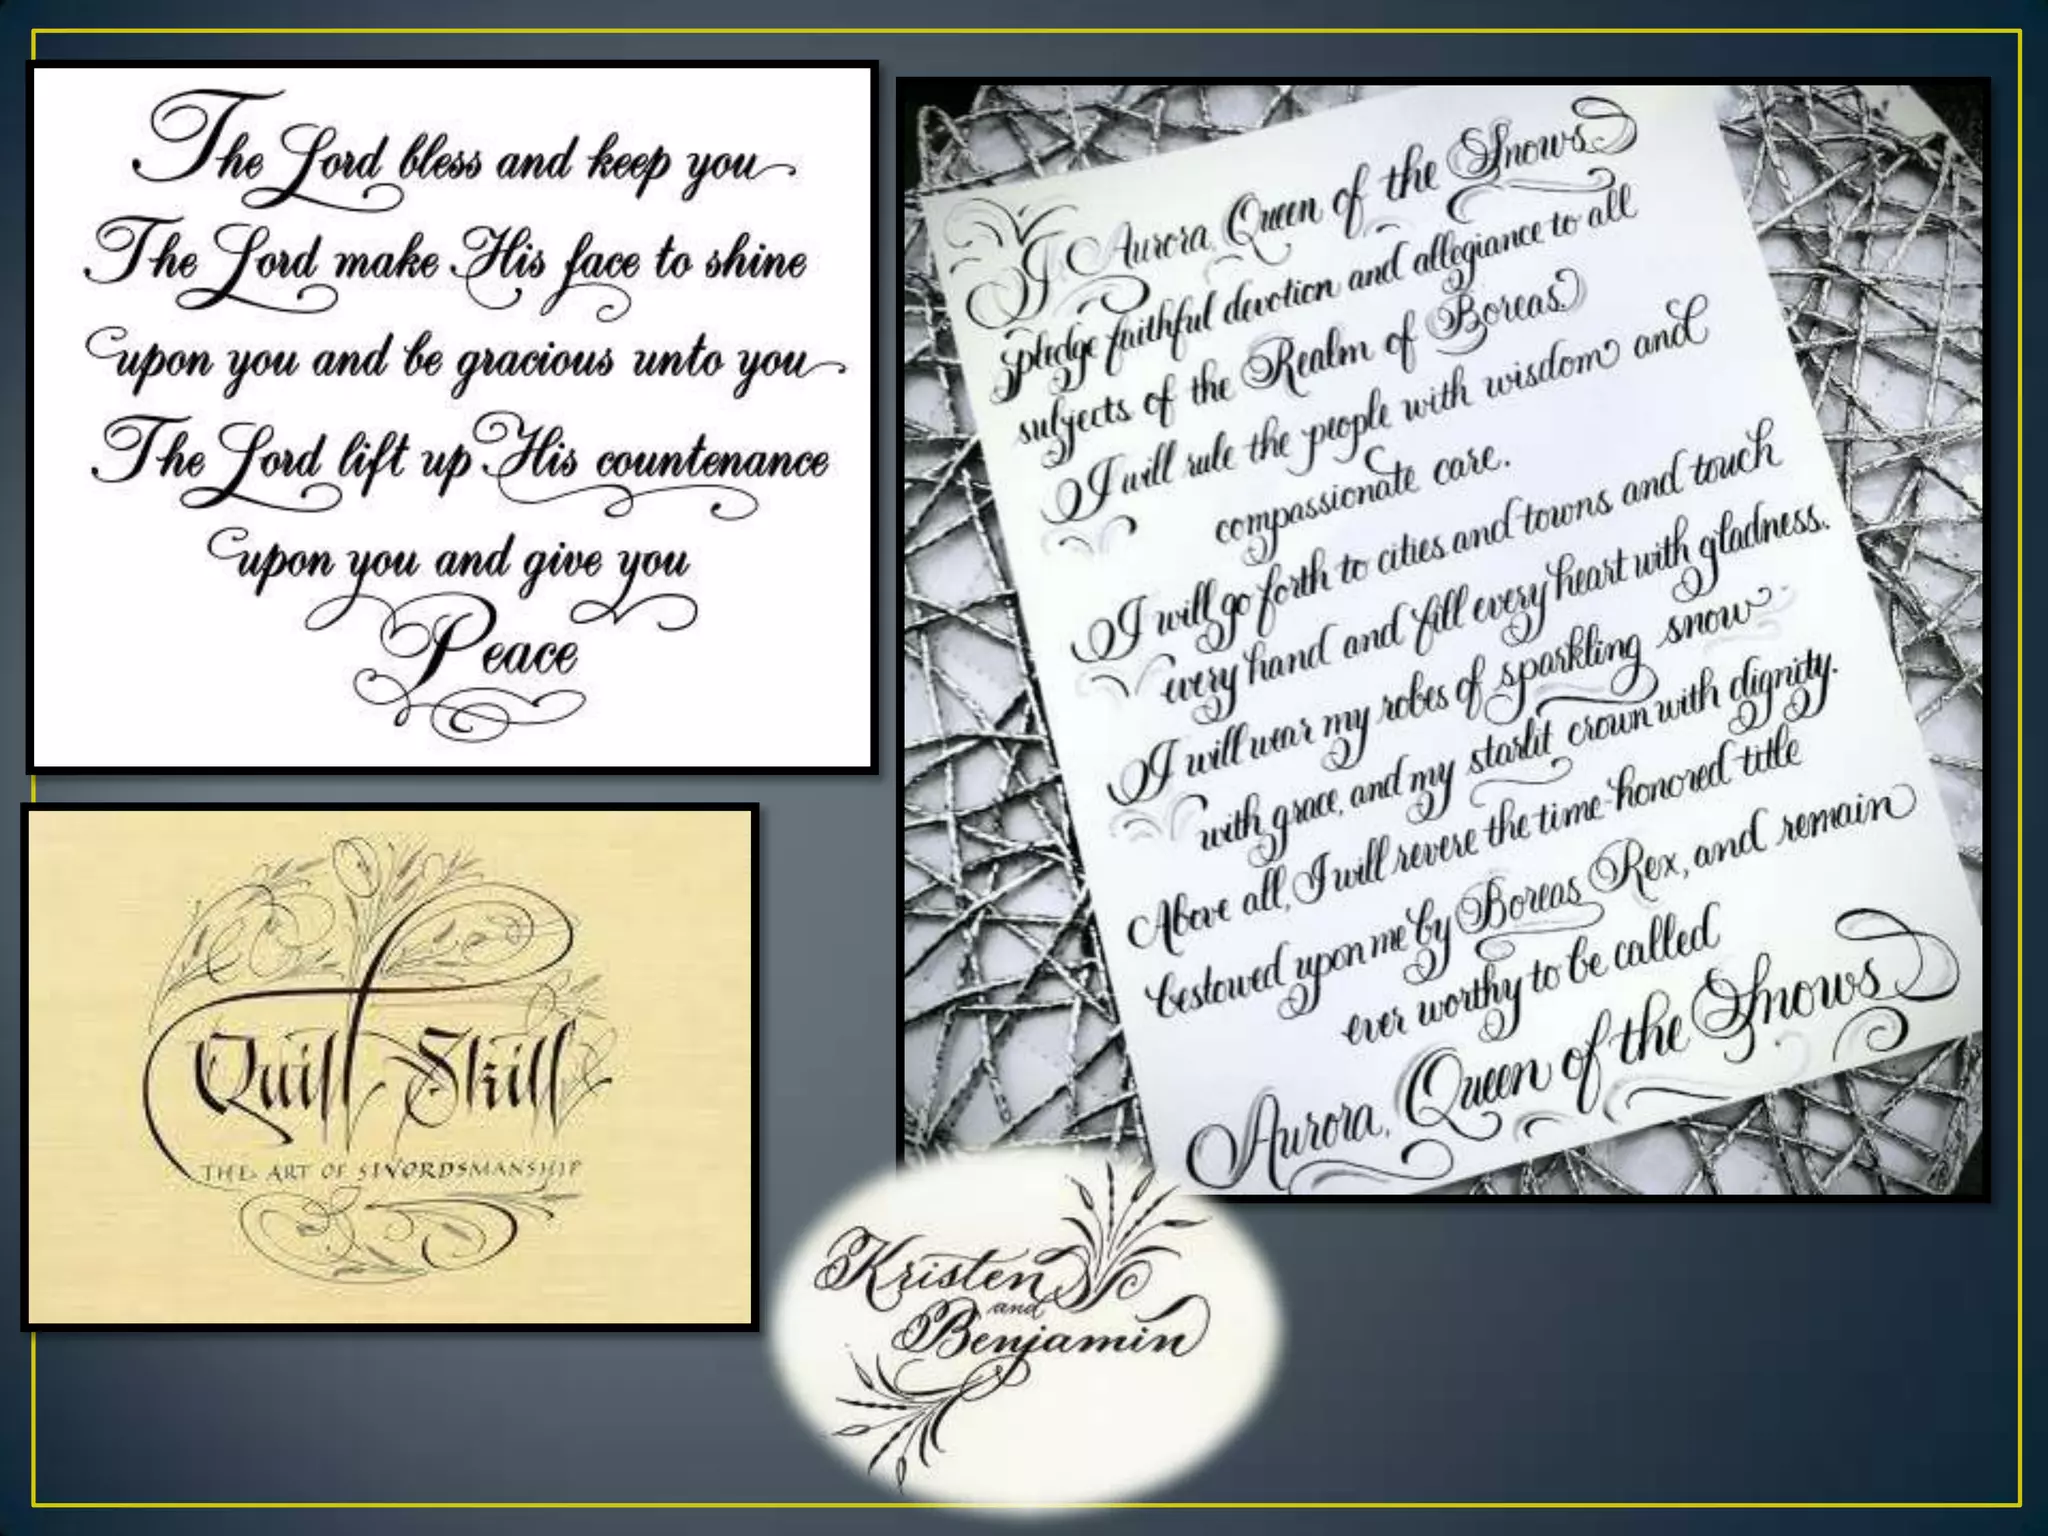 The Lord bless and keep you
The Lord make His face to shine
upon you and be gracious unto you
The Lord lift up His countenance
upon you and give you
Peace
I, Aurora, Queen of the Snows
pledge faithful devotion and allegiance to all
subjects of the Realm of Boreas.
I will rule the people with wisdom and
compassionate care.
I will go forth to cities and towns and touch
every hand and fill every heart with gladness.
I will wear my robes of sparkling snow
with grace, and my starlit crown with dignity.
Above all, I will revere the time-honored title
bestowed upon me by Boreas Rex, and remain
ever worthy to be called
Aurora, Queen of the Snows
Quill Skill
THE ART OF SWORDSMANSHIP
Kristen
and
Benjamin